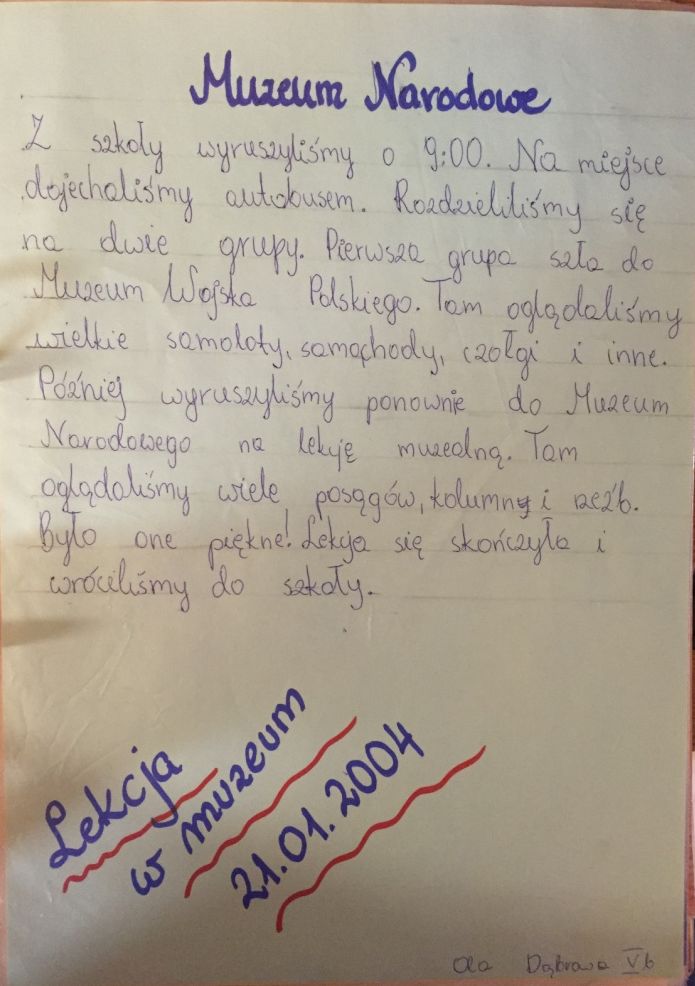 Muzeum Narodowe
Z szkoły wyruszyliśmy o 9:00. Na miejsce
dojechaliśmy autobusem. Rozdzieliliśmy się
na dwie grupy. Pierwsza grupa szła do
Muzeum Wojska Polskiego. Tam oglądaliśmy
wielkie samoloty, samochody, czołgi i inne.
Później wyruszyliśmy ponownie do Muzeum
Narodowego na lekcję muzealną. Tam
oglądaliśmy wiele posągów, kolumny i rzeźb.
Było one piękne! Lekcja się skończyła i
wróciliśmy do szkoły.
Lekcja
w muzeum
21.01.2004
Ola Dąbrowa Vb